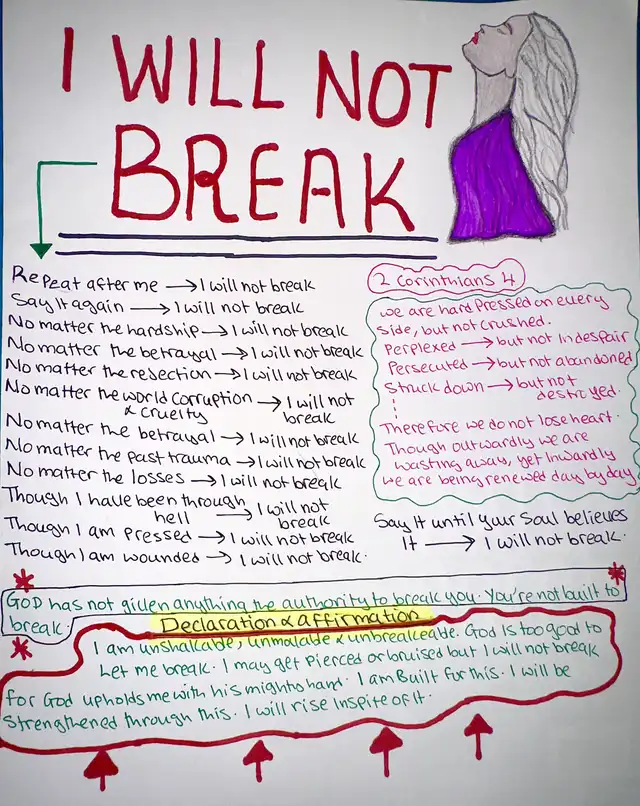 I WILL NOT
BREAK
Repeat after me → I will not break
Say It again → I will not break
No matter the hardship → I will not break
No matter the betrayal → I will not break
No matter the rejection → I will not break
No matter the world corruption → I will not
& cruelty break
No matter the betrayal → I will not break
No matter the past trauma → I will not break
No matter the losses → I will not break
Though I have been through → I will not
hell break
Though I am pressed → I will not break
Though I am wounded → I will not break.
2 Corinthians 4
We are hard pressed on every
side, but not crushed.
Perplexed → but not In despair
Persecuted → but not abandoned
Struck down → but not
destroyed.
Therefore we do not lose heart.
Though outwardly we are
wasting away, yet Inwardly
we are being renewed day by day
Say It until your Soul believes
It → I will not break.
GOD has not given anything the authority to break you. You're not built to
break.
Declaration & affirmation
I am unshakable, unmovable & unbreakeable. God is too good to
Let me break. I may get pierced or bruised but I will not break
for God upholds me with his mighty hand. I am Built for this. I will be
Strengthened through this. I will rise Inspite of It.